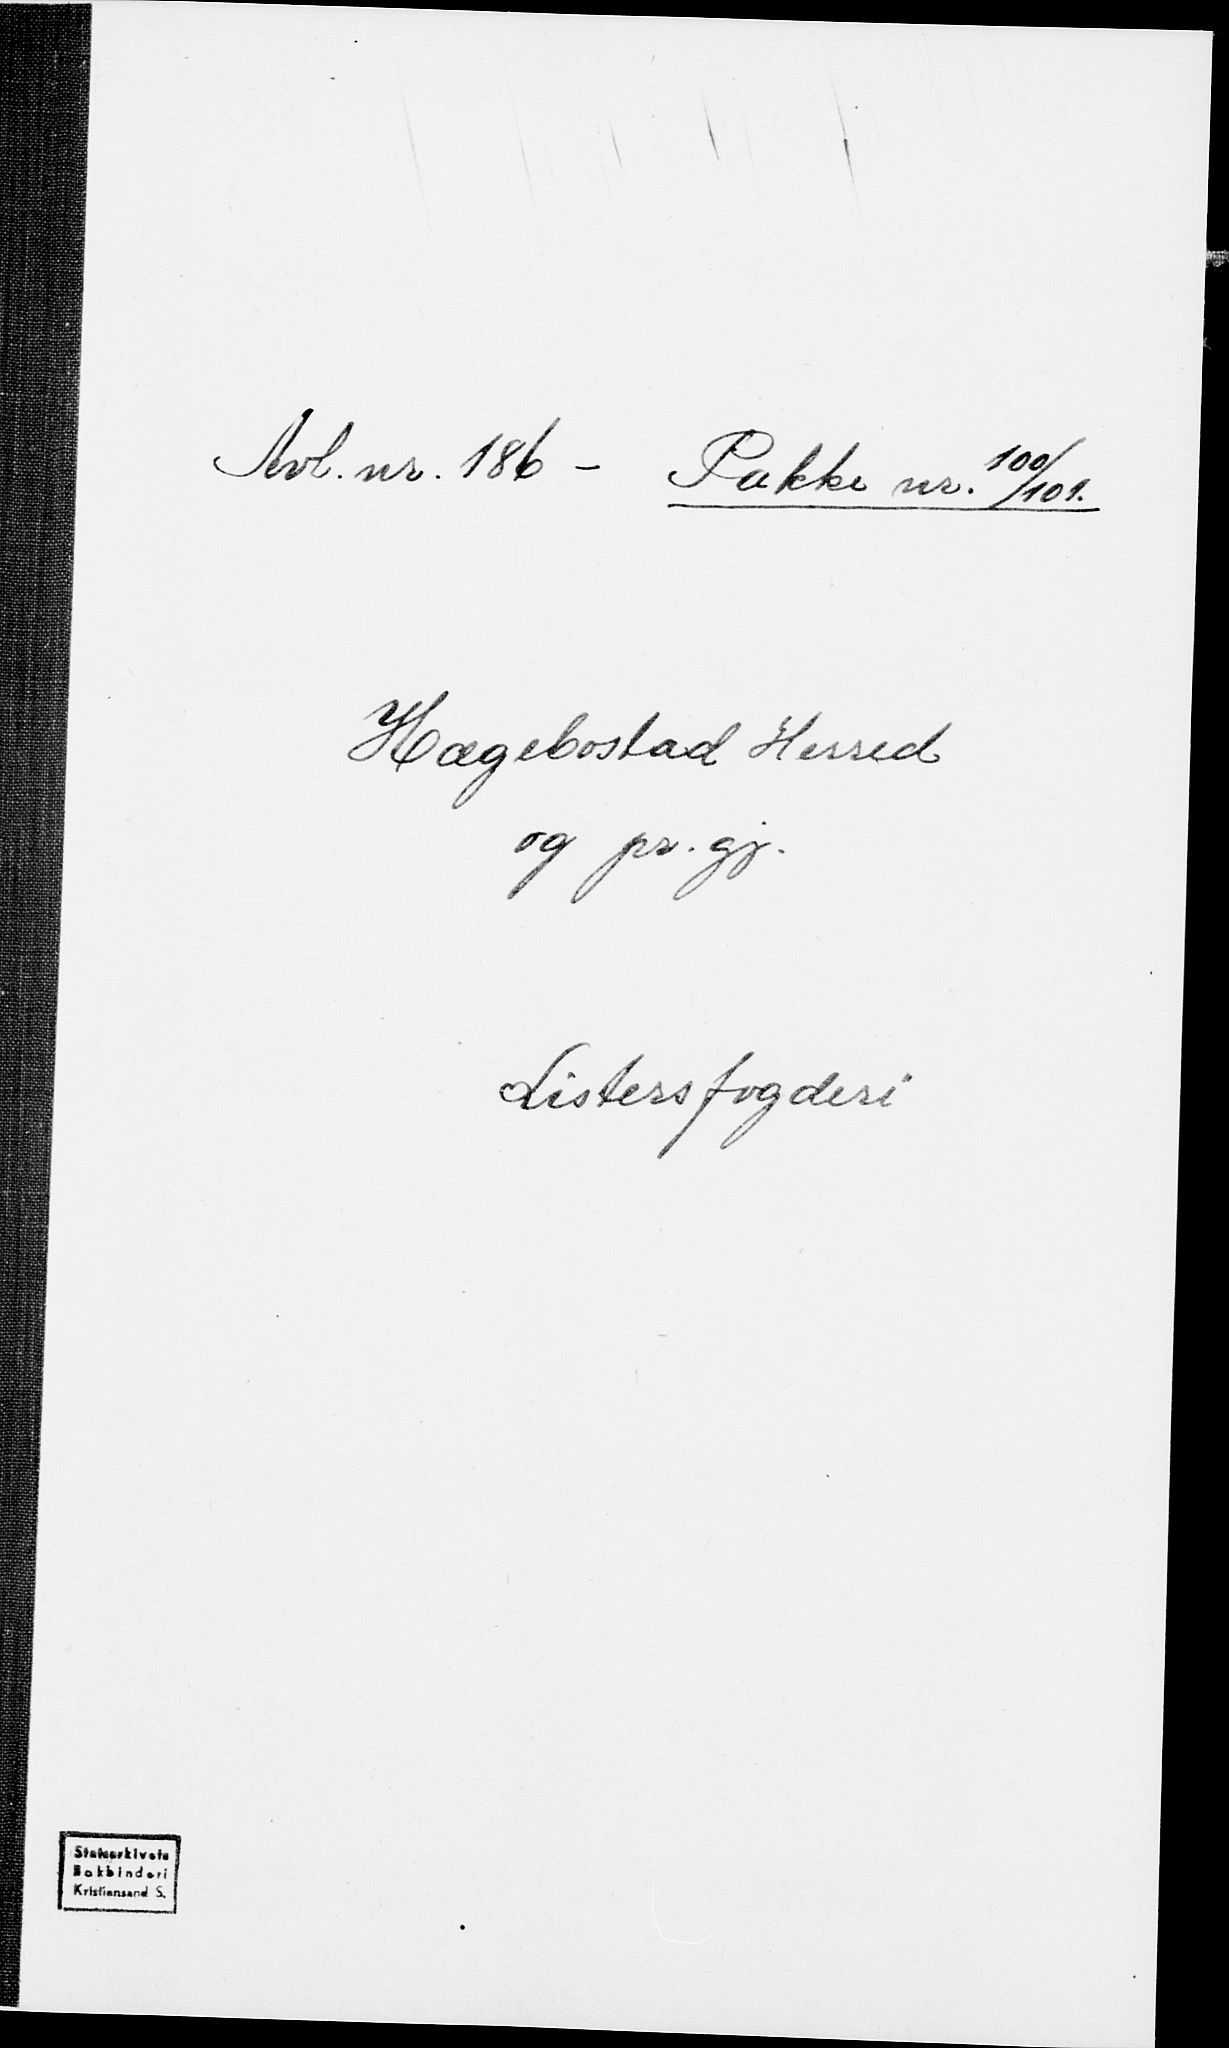 Avl. nr. 186 - Pakke nr. 100/101.
Hægebostad Herred
og pr. gj.
Listers fogderi
Statsarkivets
Bokbinderi
Kristiansand S.